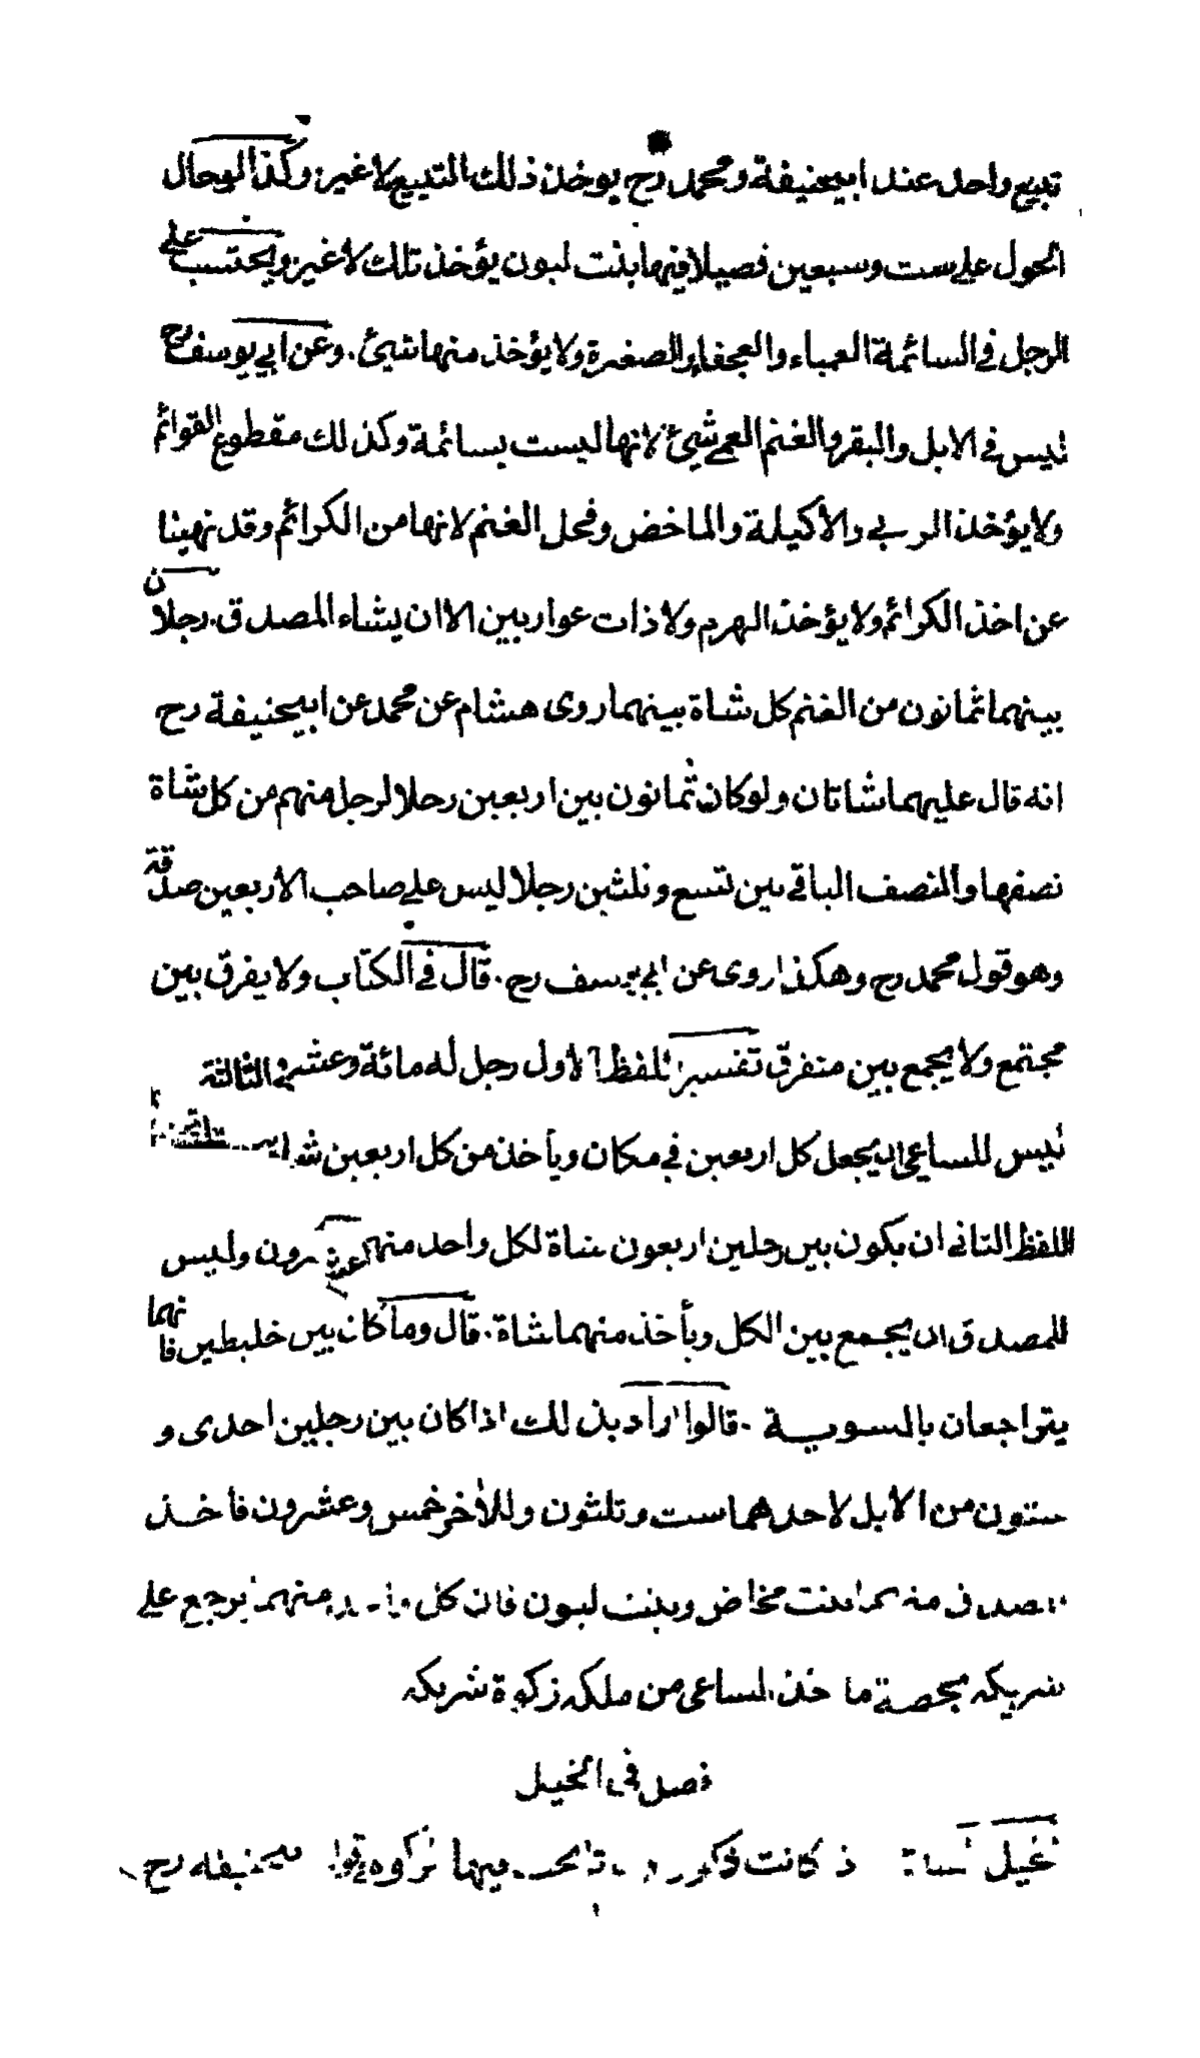 تبيع واحد عند ابيحنيفة ومحمد رح يوخذ ذلك التبيع لا غير وكذا لوحال
الحول على ست وسبعين فصيلا فيها بنت لبون يؤخذ تلك لا غير ويحتسب على
الرجل في السائمة العمياء والعجفاء والصغيرة ولا يؤخذ منها شيئ . وعن ابي يوسف رح
ليس في الابل والبقر والغنم العمي شيئ لانها ليست بسائمة وكذلك مقطوع القوائم
ولا يؤخذ الربي والاكيلة والماخض وفحل الغنم لانها من الكرائم وقد نهينا
عن اخذ الكرائم ولا يؤخذ الهرم ولا ذات عوار بين الا ان يشاء المصدق . رجلان
بينهما ثمانون من الغنم كل شاة بينهما روى هشام عن محمد عن ابيحنيفة رح
انه قال عليهما شاتان ولو كان ثمانون بين اربعين رحلا لرجل منهم من كل شاة
نصفها والنصف الباقي بين تسع وثلثين رجلا ليس على صاحب الاربعين صدقة
وهو قول محمد رح وهكذا روى عن ابي يوسف رح . قال في الكتاب ولا يفرق بين
مجتمع ولا يجمع بين متفرق تفسير اللفظ الاول رجل له مائة وعشر في الثالثة
ليس للساعي ان يجعل كل اربعين في مكان ويأخذ من كل اربعين
اللفظ الثاني ان يكون بين رجلين اربعون شاة لكل واحد منهما عشرون وليس
للمصدق ان يجمع بين الكل ويأخذ منهما شاة . قال وما كان بين خليطين فانهما
يتراجعان بالسوية . قالوا اراد بذلك اذا كان بين رجلين احدى و
ستون من الابل لاحدهما ست وثلثون وللآخر خمس وعشرون فأخذ
المصدق منهما بنت مخاض وبنت لبون فان كل منهما يرجع على
شريكه بحصة ما اخذ الساعي من ملكه زكوة شريكه
فصل في الخيل
كانت ابيحنيفة رح